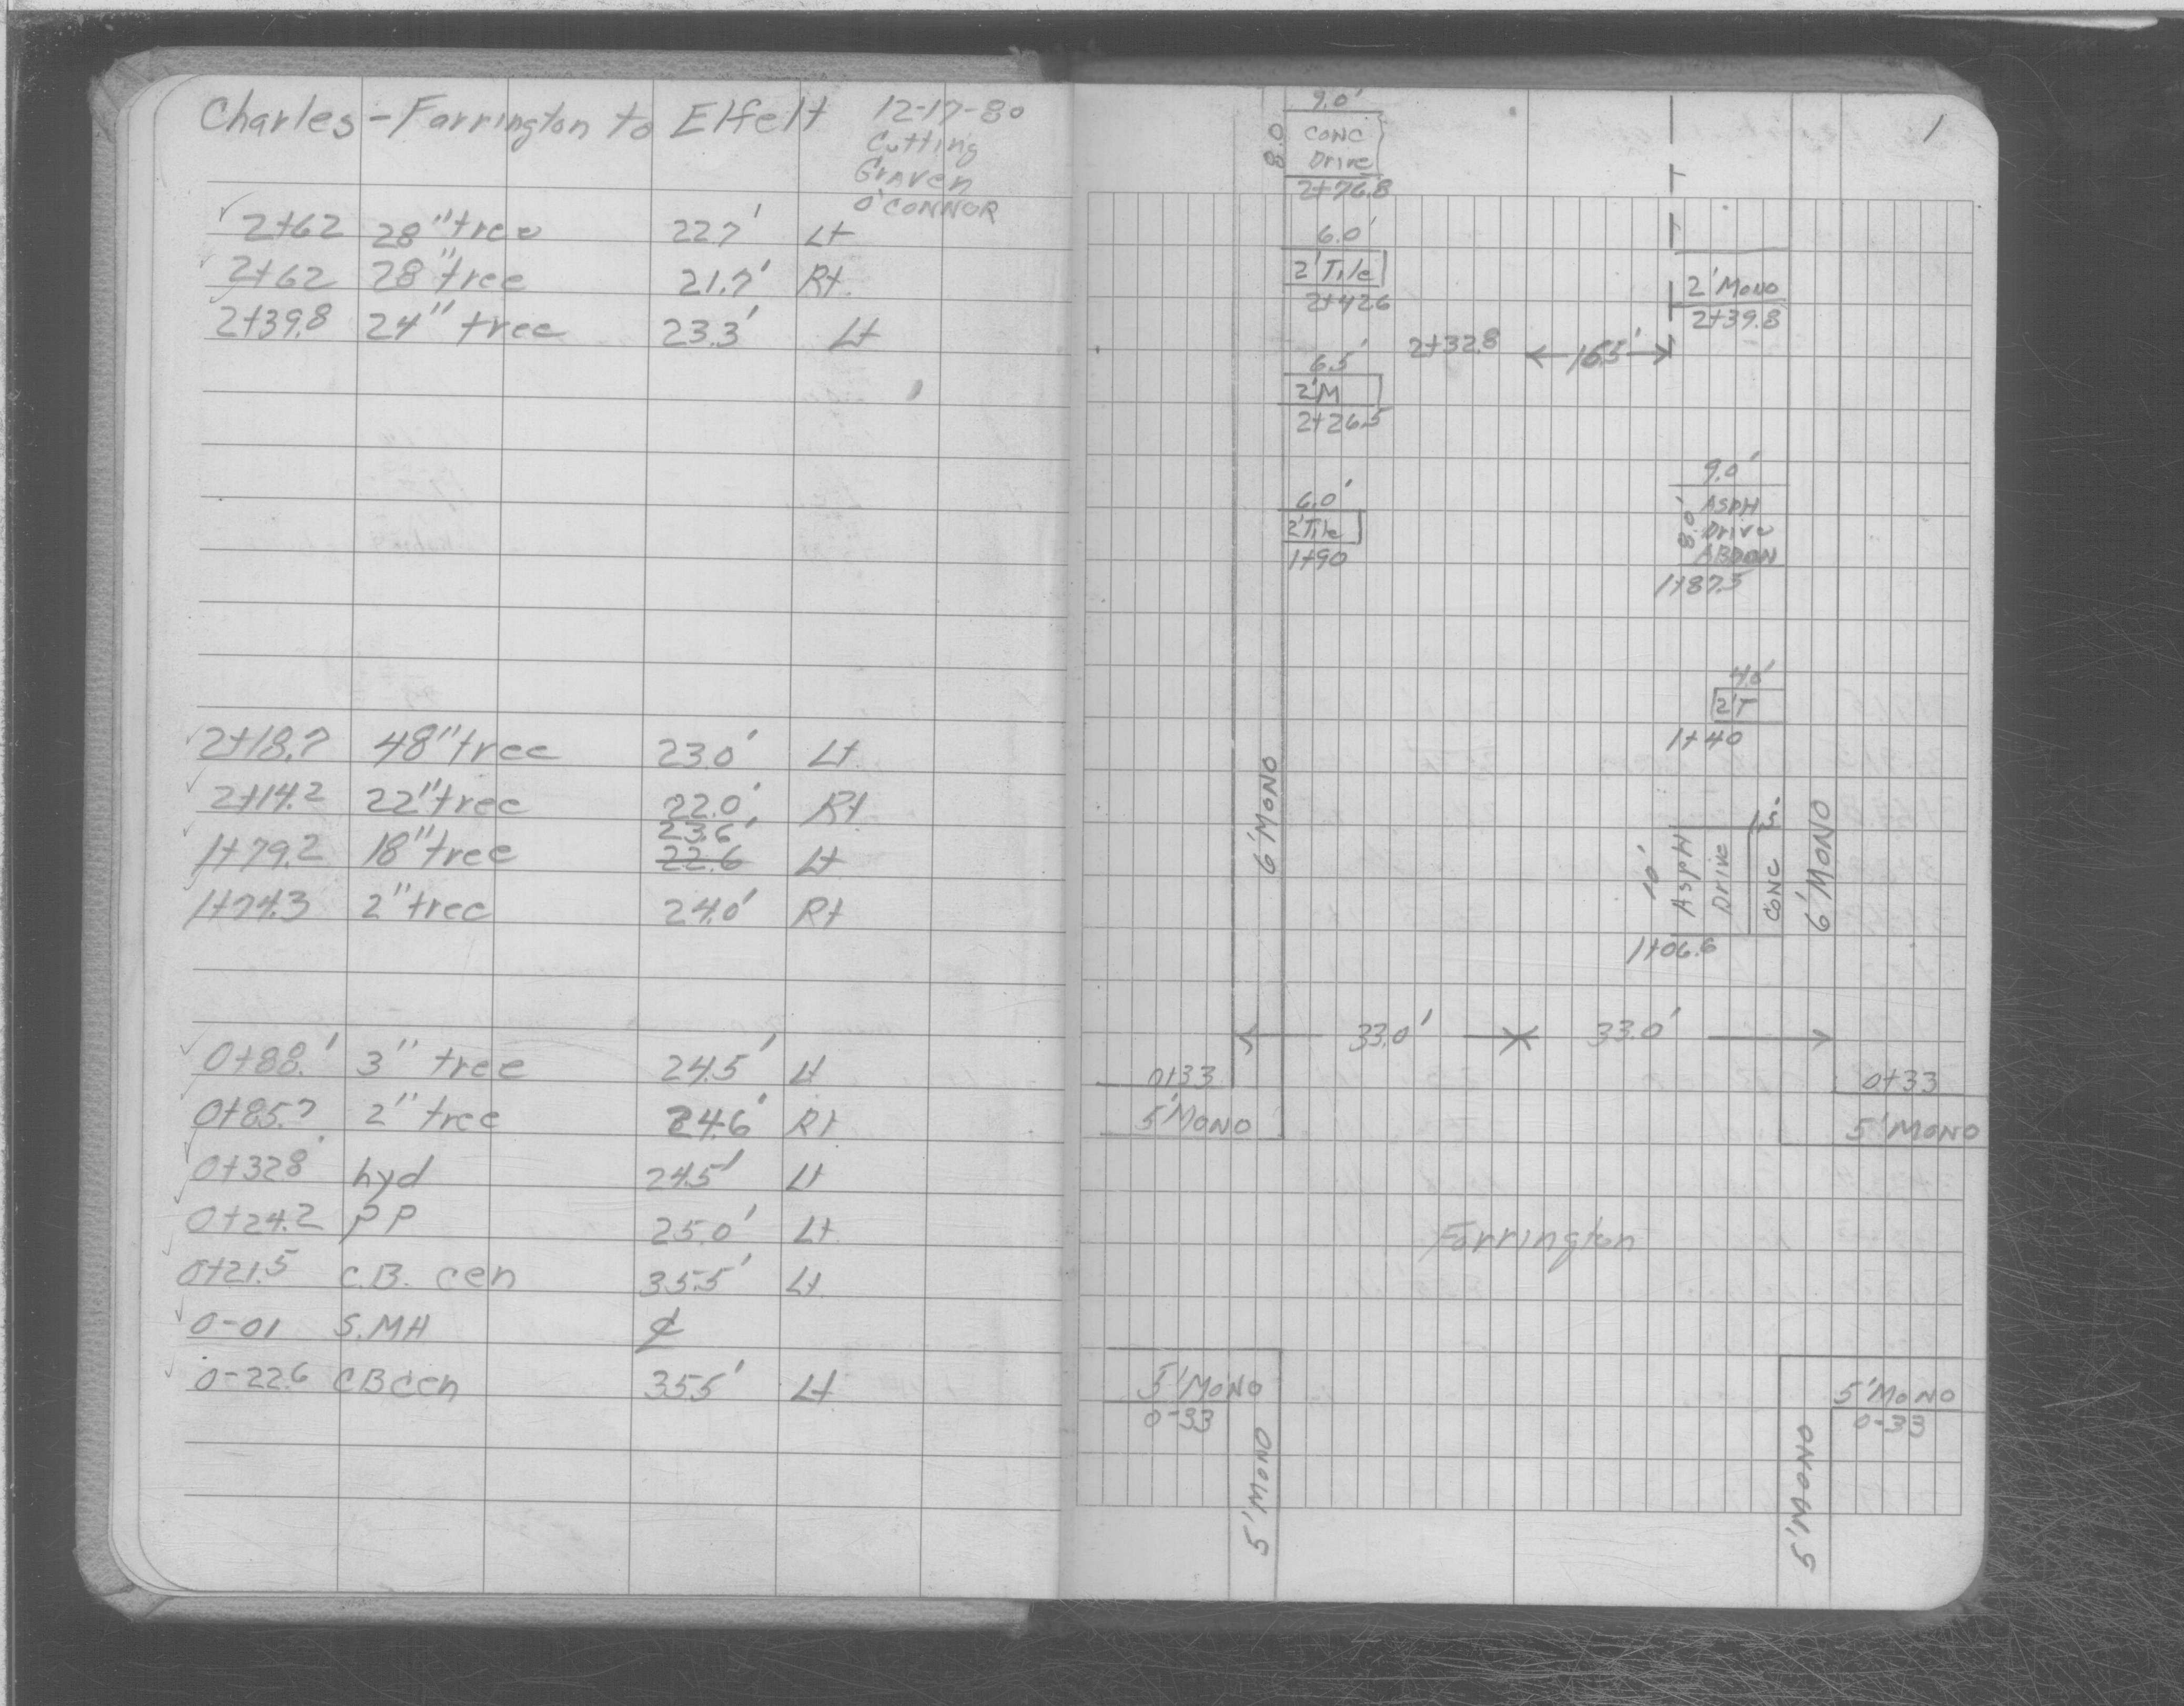 Charles - Farrington to Elfelt
12-17-80
Cutting
Graven
O'CONNOR
2+62 28" tree 22.7' Lt
2+62 28" tree 21.7' Rt.
2+39.8 24" tree 23.3' Lt
2+18.7 48" tree 23.0' Lt.
2+14.2 22" tree 22.0' Rt
23.6'
1+79.2 18" tree 22.6 Lt
1+74.3 2" tree 24.0' Rt
0+88.1 3" tree 24.5' Lt
0+85.7 2" tree 24.6' Rt
0+32.8 hyd 24.5' Lt
0+24.2 PP 25.0' Lt
0+21.5 C.B. cen 35.5' Lt.
0-01 S.MH ₵
0-22.6 CB cen 35.5' Lt
1
9.0'
8.0 CONC
Drive
2+76.8
6.0'
2' Tile
2+42.6
2' MONO
2+39.8
2+32.8 16.5'
6.5'
2'M
2+26.5
9.0'
8.0' ASPH
Drive
ABDON
1+87.5
6.0'
2' Tile
1+90
4.0'
2'T
1+40
6' MONO
10'
Asph
Drive
CONC
6' MONO
1+06.6
33.0' 33.0'
0+33 0+33
5' MONO 5' MONO
Farrington
5' MONO 5' MONO
0-33 0-33
5' MONO 5' MONO